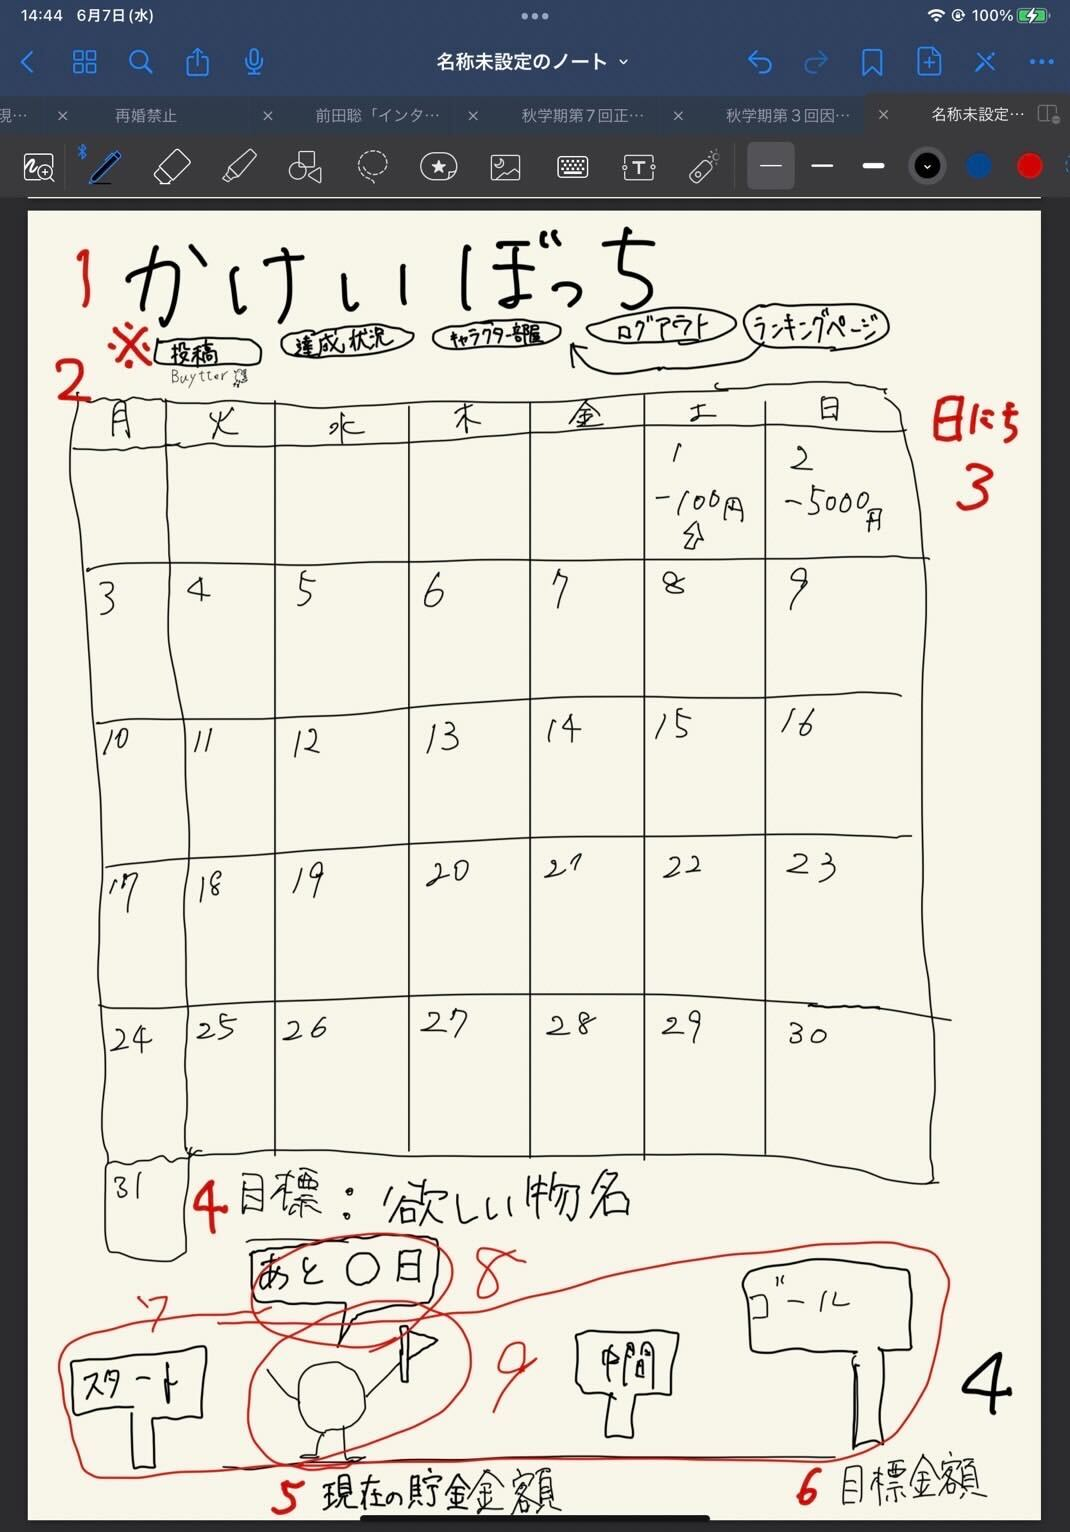 14:44 6月7日(水) 100%
名称未設定のノート
現… 再婚禁止 前田聡「インタ… 秋学期第7回正… 秋学期第3回因… 名称未設定…
T
1 かけいぼっち
※ 投稿 達成状況 キャラクター部屋 ログアウト ランキングページ
Buytter
2
月 火 水 木 金 土 日
日にち
3
1 2
-100円 -5000円
3 4 5 6 7 8 9
10 11 12 13 14 15 16
17 18 19 20 21 22 23
24 25 26 27 28 29 30
31
4 目標:欲しい物名
あと〇日 8
7
ゴール
スタート 9 中間 4
5 現在の貯金金額
6 目標金額